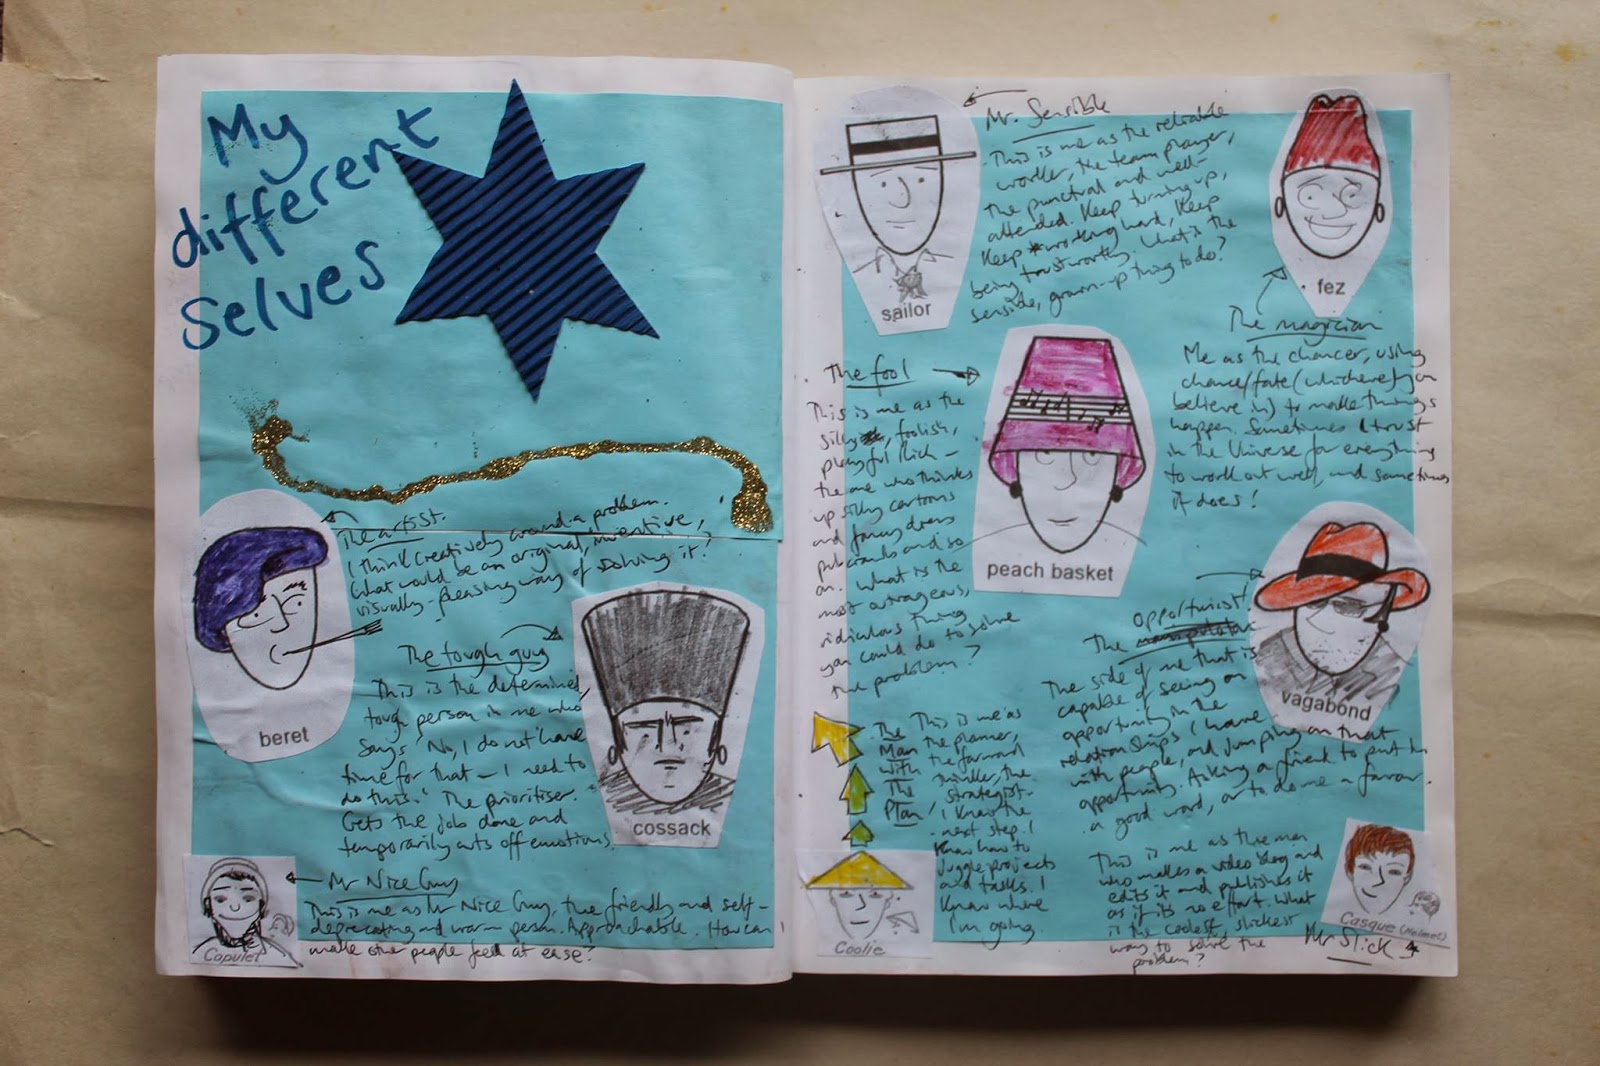 My
different
Selves
The artist.
I think creatively around a problem.
What would be an original, inventive,
visually-pleasing way of solving it?
beret
The tough guy
This is the determined,
tough person in me who
says 'No, I do not have
time for that – I need to
do this.' The prioritiser.
Gets the job done and
temporarily cuts off emotions.
cossack
Mr Nice Guy
This is me as Mr Nice Guy, the friendly and self-
deprecating and warm person. Approachable. How can I
make other people feel at ease?
Capulet
Mr. Sensible
This is me as the reliable
worker, the team player,
the punctual and well-
attended. Keep turning up,
Keep working hard, Keep
being trustworthy. What is the
senside, grown-up thing to do?
sailor
fez
The magician
Me as the chancer, using
chance/fate (whichever you
believe in) to make things
happen. Sometimes I trust
in the Universe for everything
to work out well, and sometimes
it does!
The fool
This is me as the
silly, foolish,
playful
the one who thinks
up silly cartoons
and fancy dress
pub crawls and so
on. What is the
most outrageous,
ridiculous thing
you could do to solve
the problem?
peach basket
The opportunist
The side of me that is
capable of seeing an
opportunity in the
relationships I have
with people, and jumping on that
opportunity. Asking a friend to put in
a good word, or to do me a favour.
vagabond
The
Man
With
The
Plan
This is me as
the planner,
the forward
thinker, the
strategist.
I know the
next step. I
know how to
juggle projects
and tasks. I
know where
I'm going.
Coolie
This is me as the man
who makes a video blog and
edits it and publishes it
as if it's no effort. What
is the coolest, slickest
way to solve the
problem?
Casque (Helmet)
Mr Slick